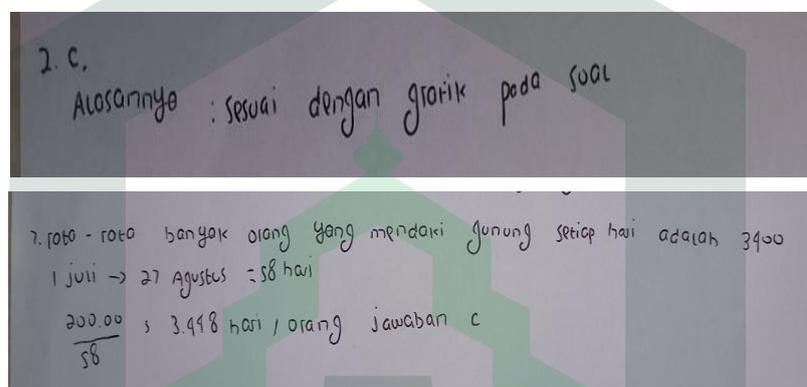 2. C.
Alasannya : sesuai dengan grafik pada soal
7. rata - rata banyak orang yang mendaki gunung setiap hari adalah 3400
1 juli -> 27 Agustus = 58 hari
200.00 / 58 s 3.448 hari / orang jawaban c